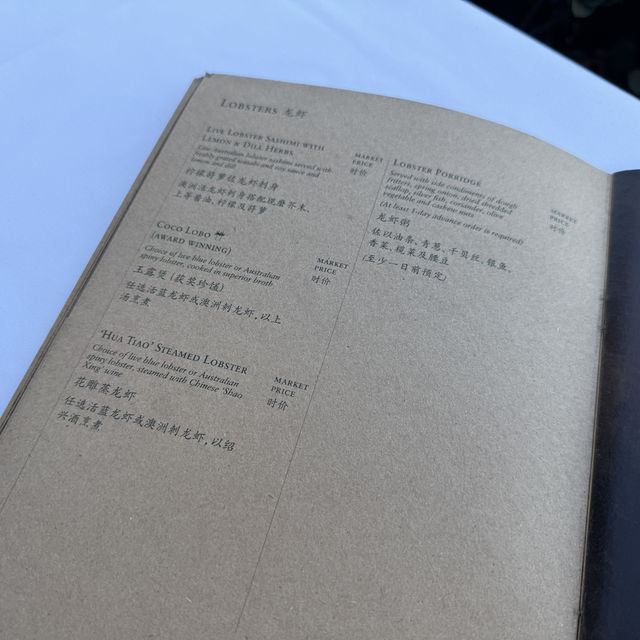 LOBSTERS 龙虾
LIVE LOBSTER SASHIMI WITH
LEMON & DILL HERBS
Live Australian lobster sashimi served with
freshly grated wasabi, soy sauce and
MARKET
PRICE
时价
柠檬莳萝活龙虾刺身
澳洲活龙虾刺身搭配现磨芥末,
上等酱油, 柠檬及莳萝
COCO LOBO
(AWARD WINNING)
Choice of live blue lobster or Australian
spiny lobster, cooked in superior broth
MARKET
PRICE
时价
玉露煲 (获奖珍馐)
任选活蓝龙虾或澳洲刺龙虾, 以上
汤烹煮
'HUA TIAO' STEAMED LOBSTER
Choice of live blue lobster or Australian
spiny lobster, steamed with Chinese 'Shao
Xing' wine
MARKET
PRICE
时价
花雕蒸龙虾
任选活蓝龙虾或澳洲刺龙虾, 以绍
兴酒烹煮
LOBSTER PORRIDGE
Served with side condiments of dough
fritters, spring onion, dried shredded
scallop, silver fish, coriander, olive
vegetable and kidney beans
(At least 1-day advance order is required)
MARKET
PRICE
时价
龙虾粥
佐以油条, 青葱, 干贝丝, 银鱼,
香菜, 榄菜及腰豆
(至少一日前预定)